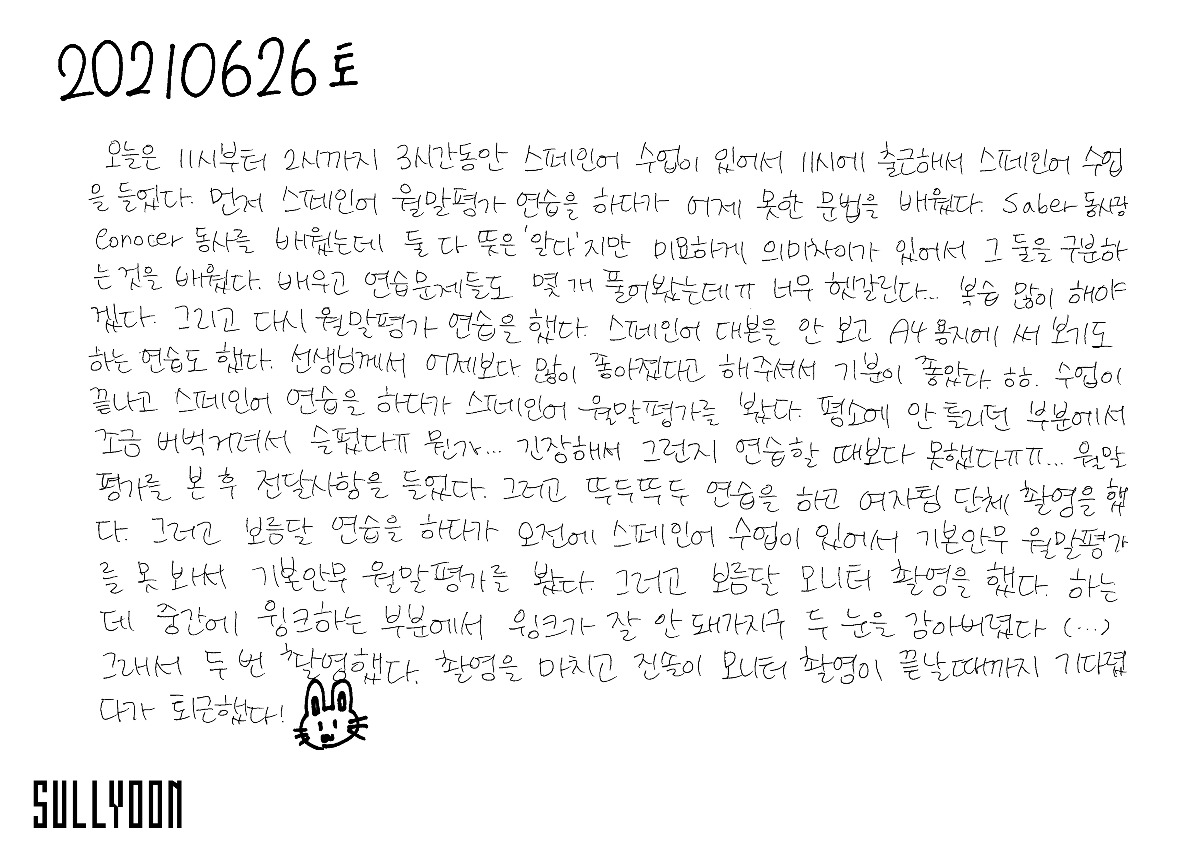 20210626토
오늘은 11시부터 2시까지 3시간동안 스페인어 수업이 있어서 11시에 출근해서 스페인어 수업
을 들었다. 먼저 스페인어 월말평가 연습을 하다가 어제 못한 문법을 배웠다. Saber 동사랑
Conocer 동사를 배웠는데 둘 다 뜻은 '알다'지만 미묘하게 의미차이가 있어서 그 둘을 구분하
는 것을 배웠다. 배우고 연습문제들도 몇 개 풀어봤는데ㅠ 너무 헷갈린다... 복습 많이 해야
겠다. 그리고 다시 월말평가 연습을 했다. 스페인어 대본을 안 보고 A4 용지에 써 보기도
하는 연습도 했다. 선생님께서 어제보다 많이 좋아졌다고 해주셔서 기분이 좋았다 ㅎㅎ. 수업이
끝나고 스페인어 연습을 하다가 스페인어 월말평가를 봤다. 평소에 안 틀리던 부분에서
조금 버벅거려서 슬펐다ㅠ 뭔가... 긴장해서 그런지 연습할 때보다 못했다ㅠㅠ... 월말
평가를 본 후 전달사항을 들었다. 그러고 뚜두뚜두 연습을 하고 여자팀 단체 촬영을 했
다. 그러고 보름달 연습을 하다가 오전에 스페인어 수업이 있어서 기본안무 월말평가
를 못 봐서 기본안무 월말평가를 봤다. 그러고 보름달 모니터 촬영을 했다. 하는
데 중간에 윙크하는 부분에서 윙크가 잘 안 돼가지구 두 눈을 감아버렸다 (...)
그래서 두 번 촬영했다. 촬영을 마치고 진솔이 모니터 촬영이 끝날때까지 기다렸
다가 퇴근했다!
SULLYOON